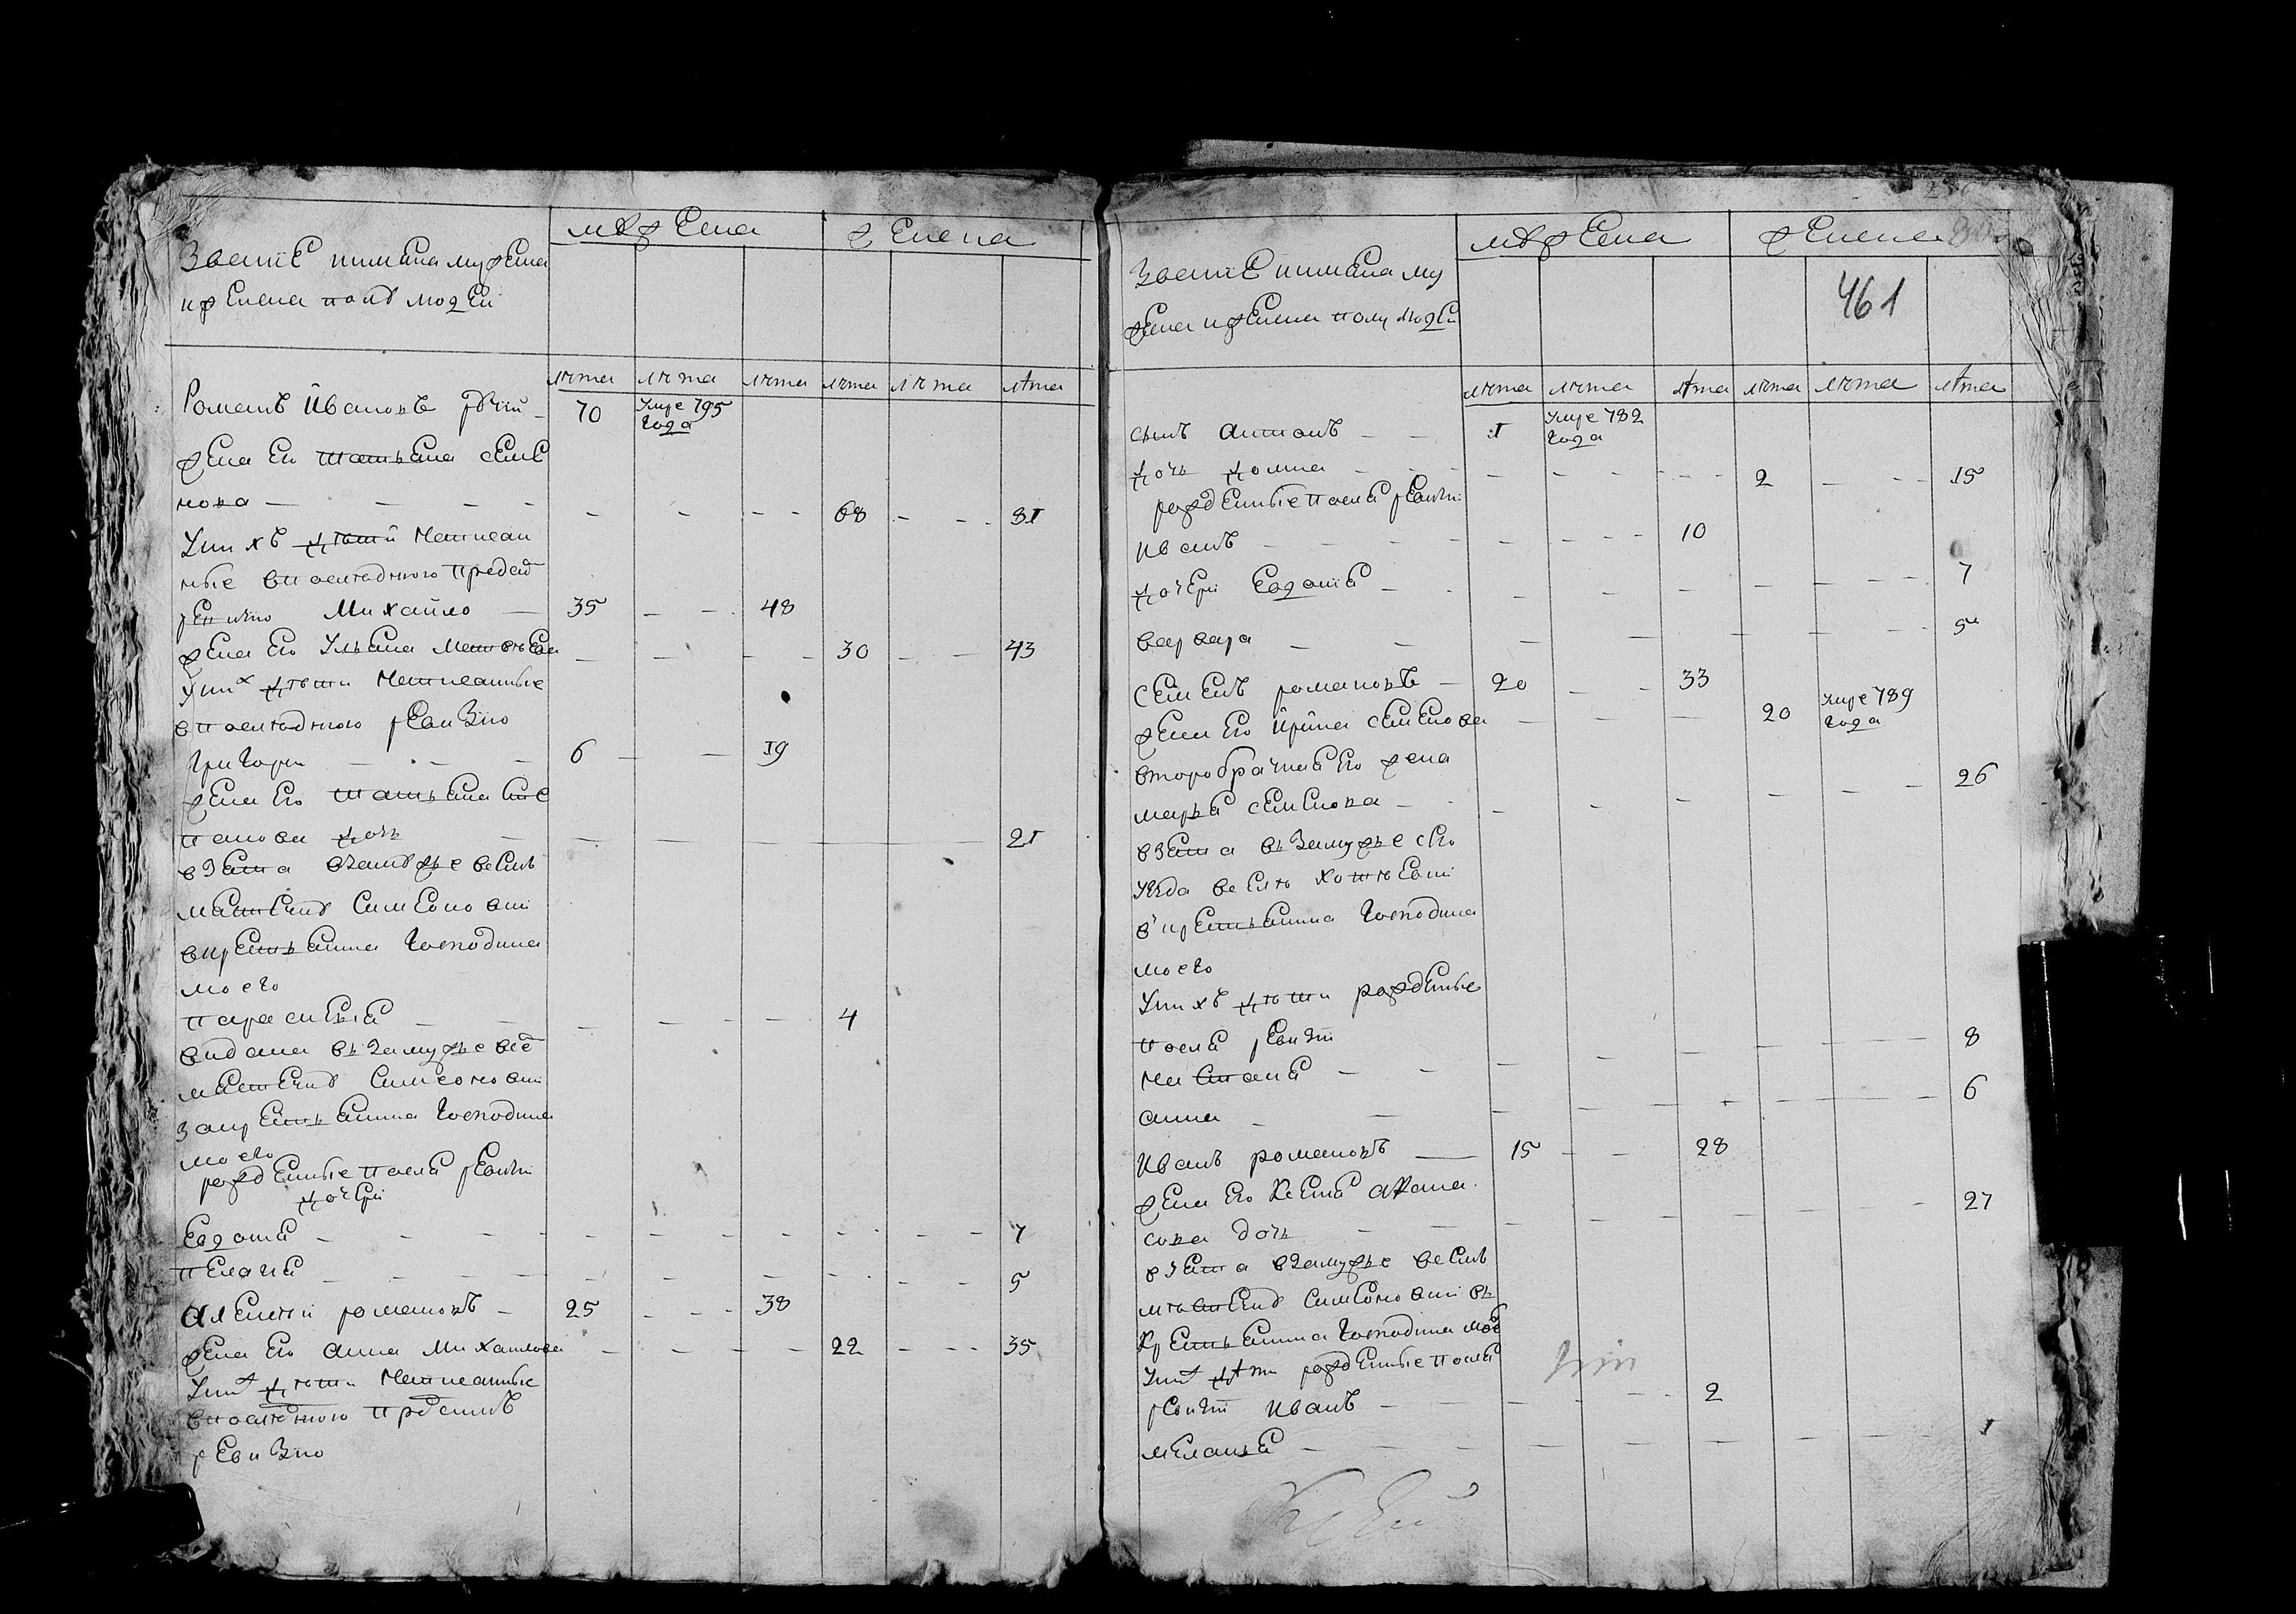 Звание и имена мужеска
и женска полу людей
мужеска
женска
лета лета лета лета лета лета
Романъ Ивановъ 70 умре 795 года
жена ево татьяна семе
нова — — — — — — — 68 — — 81
У нихъ дети написан
ные в последнюю пред сею
ревизию Михайло — 35 — — 48
жена ево Ульяна Матвеева — — — — 30 — — 43
У них дети написанные
в последнюю ревизию
Григореи — — — 6 — — 19
жена ево татьяна сте
панова дочь — — — — — — 21
взята взамужье в селе
в крестьянина господина
моего
парасковья — — — — — 4
выдана въ замужье в се
за крестьянина господина
моего
рожденные после ревизии
дочери
Евдотья — — — — — — — — — 7
пелагея — — — — — — — — — 5
Алексей романовъ — 25 — — 38
жена ево анна Михайлова — — — — 22 — — 35
У них дети написанные
в последнюю пред сею
ревизию
Звание и имена му
жеска и женска полу людей
мужеска
женска
461
лета лета лета лета лета лета
сынъ антонъ — — 1 умре 782 года
дочь домна — — — — — — 2 — — 15
рожденные после ревизии
Иванъ — — — — — — 10
дочери Евдотья — — — — — — — 7
варвара — — — — — — — 5
Семенъ романовъ — 20 — — 33
жена ево Ирина семенова — — — 20 умре 789 года
второбрачная ево жена
марья семенова — — — — — — — 26
взята въ замужье сего
уезда в селе
в крестьянина господина
моего
У нихъ дети рожденые
после ревизии
настасья — — — — — — — 8
анна — — — — — — — 6
Иванъ романовъ — 15 — — 28
жена ево Ксенья афона
сова дочь — — — — — — — 27
взята взамужье в селе
крестьянина господина моего
У них дети рожденные после
ревизии Иванъ — — — — 2
меланья — — — — — — — 1